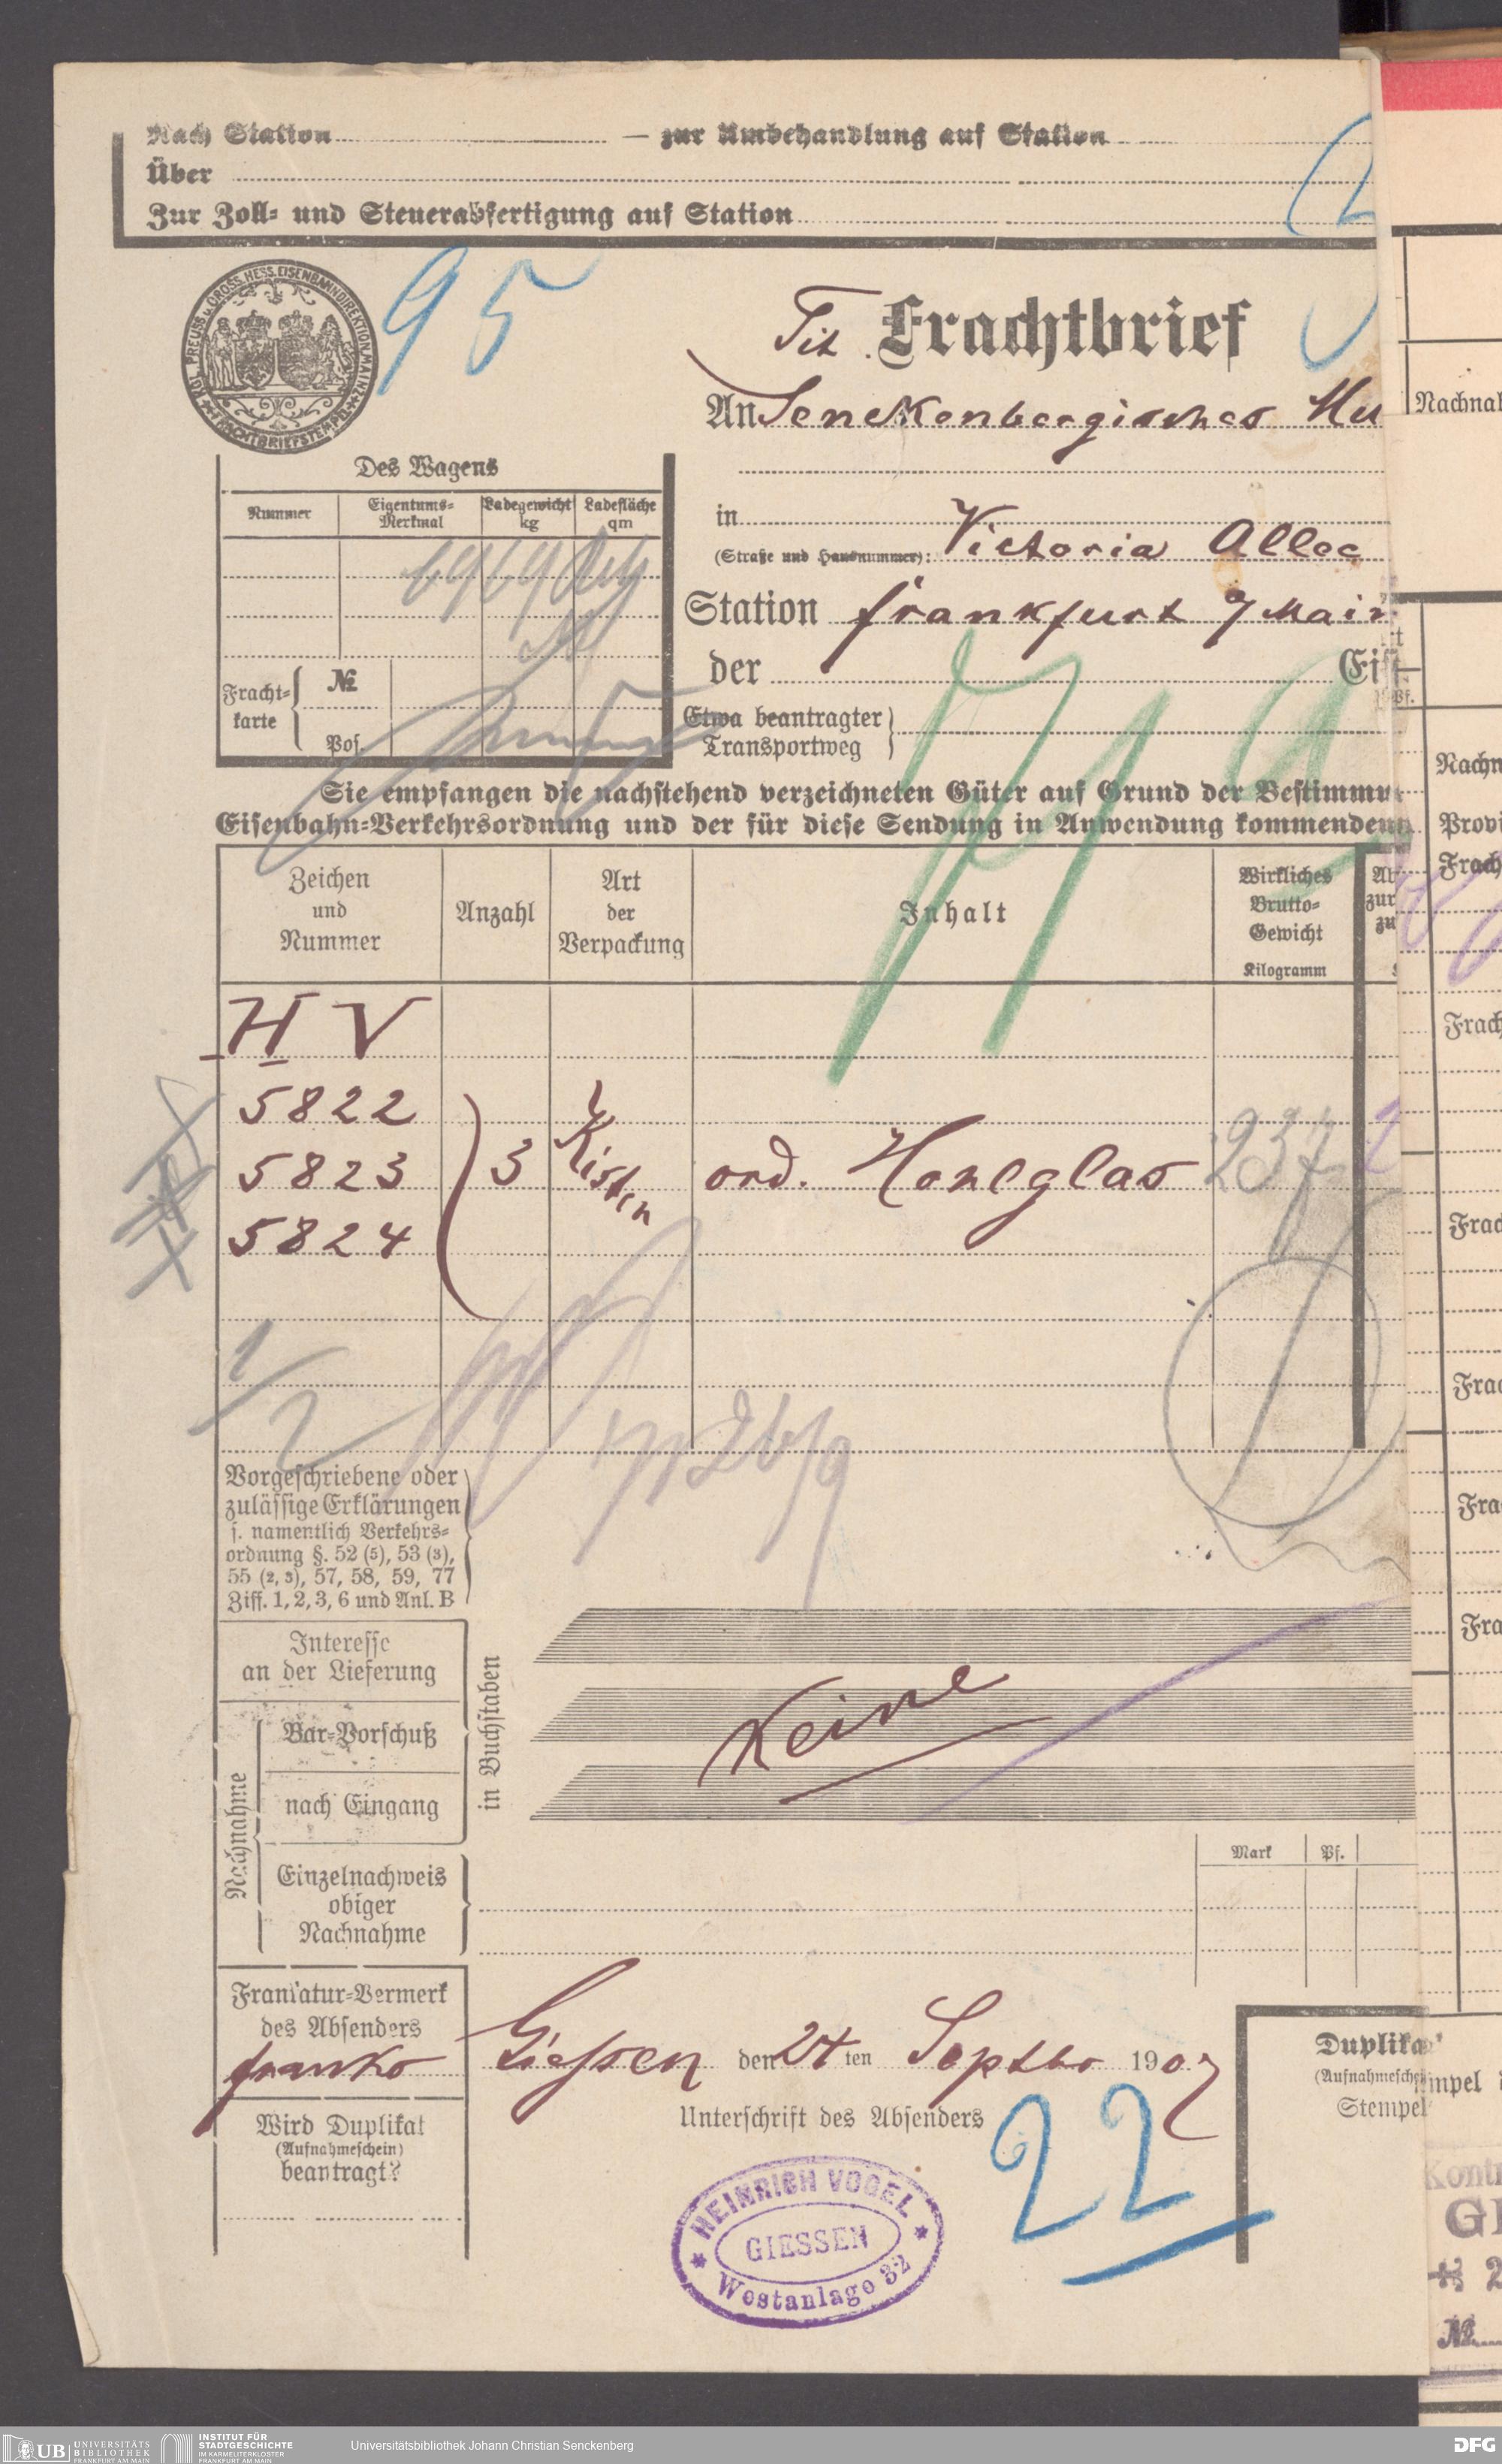 Nach Station — zur Umbehandlung auf Station
Über
Zur Zoll- und Steuerabfertigung auf Station
95
KGL. PREUSS. u. GROSS. HESS. EISENBAHNDIREKTION MAINZ
FRACHTBRIEFSTEMPEL
Tit. Frachtbrief
An Senckenbergisches Mu
Nachnal
Des Wagens
Nummer
Eigentums-
Merkmal
Ladegewicht
kg
Ladefläche
qm
in
(Straße und Hausnummer): Victoria Allee
Station Frankfurt a/Main
der Eis
Fracht-
karte
№
Pos.
Etwa beantragter
Transportweg
Sie empfangen die nachstehend verzeichneten Güter auf Grund der Bestimmu
Eisenbahn-Verkehrsordnung und der für diese Sendung in Anwendung kommenden
Zeichen
und
Nummer
Anzahl
Art
der
Verpackung
Inhalt
Wirkliches
Brutto-
Gewicht
Kilogramm
Ab
zur
zu
H V
5822
5823 3 Kisten ord. Hohlglas 237
5824
1/2
26/9
Vorgeschriebene oder
zulässige Erklärungen
s. namentlich Verkehrs-
ordnung §. 52 (5), 53 (3),
55 (2, 3), 57, 58, 59, 77
Ziff. 1, 2, 3, 6 und Anl. B
Interesse
an der Lieferung
Nachnahme
Bar-Vorschuß
nach Eingang
in Buchstaben
Keine
Einzelnachweis
obiger
Nachnahme
Mark Pf.
Frankatur-Vermerk
des Absenders
franko
Giessen den 24 ten Septbr 1907
Unterschrift des Absenders
Wird Duplikat
(Aufnahmeschein)
beantragt?
22
HEINRICH VOGEL
GIESSEN
Westanlage 32
Duplikat
(Aufnahmesche
Stempel
mpel
Nachn
Provi
Frach
Frach
Frac
Frac
Fra
Fra
Kontr
GI
№
UB UNIVERSITÄTS
BIBLIOTHEK
FRANKFURT AM MAIN
INSTITUT FÜR
STADTGESCHICHTE
IM KARMELITERKLOSTER
FRANKFURT AM MAIN
Universitätsbibliothek Johann Christian Senckenberg
DFG